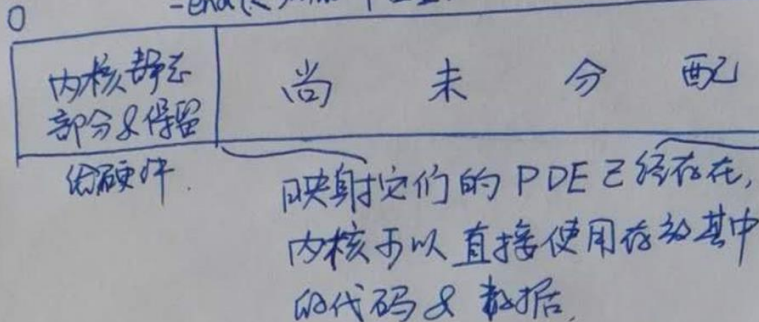 0
内核静态
部分&保留
给硬件.
尚 未 分 配
映射它们的 PDE 已经存在,
内核可以直接使用存放其中
的代码 & 数据.